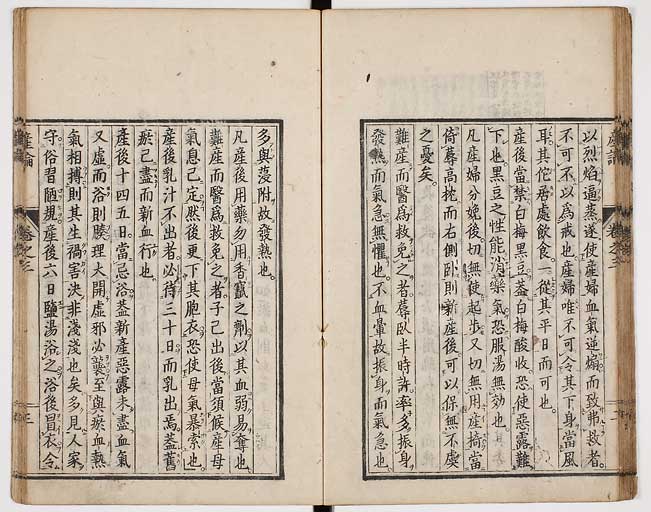 以烈焰逼蒸遂使產婦血氣逆煽而致弗救者
不可不以爲戒也產婦唯不可令其下身當風
耳其佗居處飲食一從其平日而可也
產後當禁白梅黑豆葢白梅酸收恐使惡露難
下也黑豆之性能消藥氣恐服湯無効也
凡產婦分娩後切無使起步又切無用產掎當
倚蓐高枕而右側臥則新產後可以保無不虞
之憂矣
難產而醫爲救免之者蓐臥半時許率多振身
發熱而氣急無懼也不血暈故振身而氣急也
多與蓡附故發熱也
凡產後用藥勿用香竄之劑以其血弱易奪也
難產而醫爲救免之者子已出後當須候產母
氣息已定然後更下其胞衣恐使母氣暴索也
產後乳汁不出者必待三十日而乳出焉葢舊
瘀已盡而新血行也
產後十四五日當忌浴葢新產惡露未盡血氣
又虛而浴則腠理大開虛邪必襲至與瘀血熱
氣相搏則其生禍害決非淺淺也矣多見人家
守俗習陋規產後六日鹽湯浴之浴後冒衣令
產論
卷之三
三